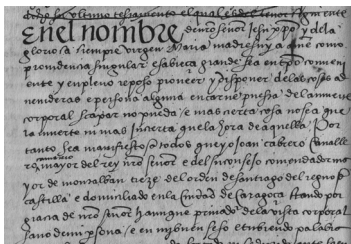 su ultimo testamento el qual es del tenor siguiente
En el nombre de nro señor Jesu xpo y de la
gloriosa siempre virgen Maria madre suya como
providencia singular e sabieza grande sea en tpo conveni
ente y en pleno reposo y disponer de las cosas ad
venideras e persona alguna en carne puesta de la muerte
corporal scapar no pueda e mas certa cosa no sea que
la muerte ni mas incerta que la hora de aquella Por
tanto sea manifiesto a todos que yo Joan cabrero cavalle
ro camarero mayor del rey nro señor e del su consejo comendador ma
yor de montalban de la orden de santiago del regno de
castilla e domiciliado en la ciudad de caragoça stando por
gracia de nro señor haunque privado de la vista corporal
sano de mi persona e en mi buen seso e teniendo palabra